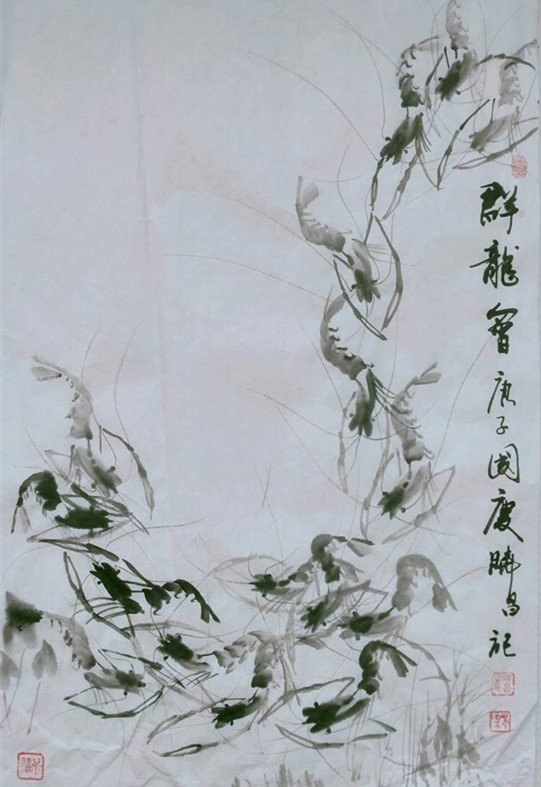 群龍會庚子國慶昌記